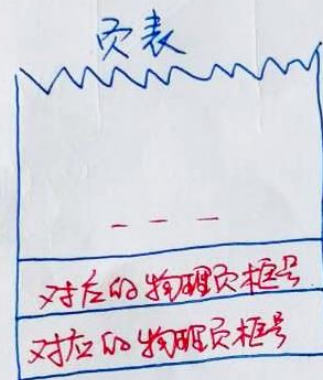 页表
— — —
对应的物理页框号
对应的物理页框号